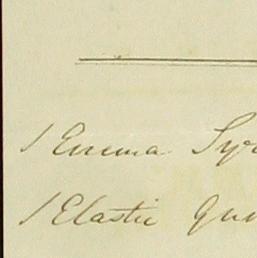 1 Enema Syr
1 Elastic Gum